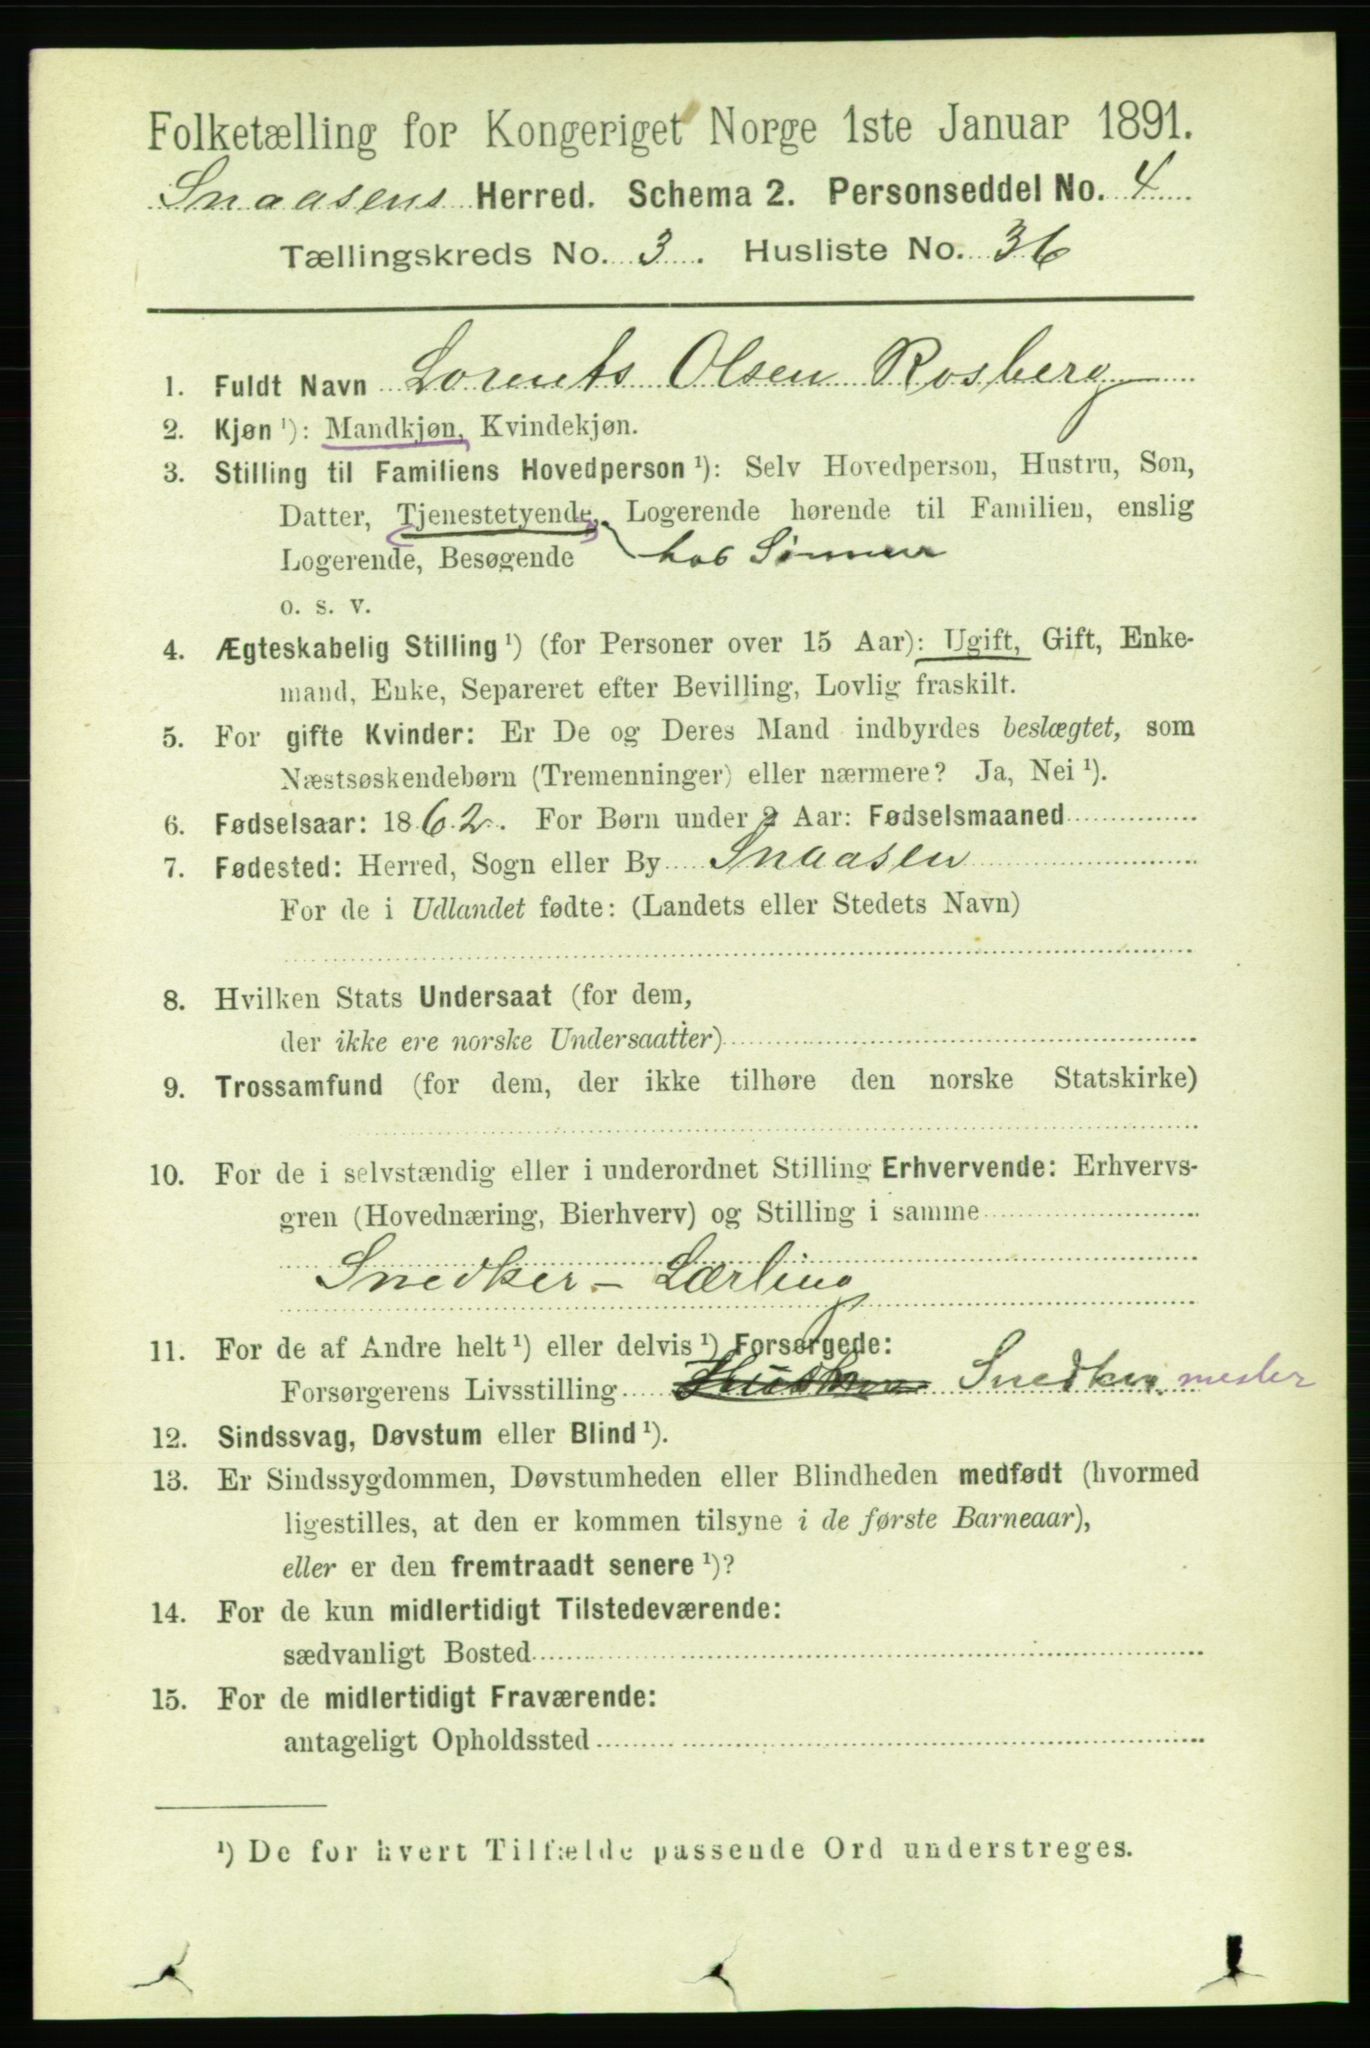 Folketælling for Kongeriget Norge 1ste Januar 1891.
Snaasens Herred. Schema 2. Personseddel No. 4
Tællingskreds No. 3. Husliste No. 36
1. Fuldt Navn Lorents Olsen Rosberg
2. Kjøn ¹): Mandkjøn, Kvindekjøn.
3. Stilling til Familiens Hovedperson ¹): Selv Hovedperson, Hustru, Søn,
Datter, Tjenestetyende, Logerende hørende til Familien, enslig
Logerende, Besøgende hos
o. s. v.
4. Ægteskabelig Stilling ¹) (for Personer over 15 Aar): Ugift, Gift, Enke-
mand, Enke, Separeret efter Bevilling, Lovlig fraskilt.
5. For gifte Kvinder: Er De og Deres Mand indbyrdes beslægtet, som
Næstsøskendebørn (Tremenninger) eller nærmere? Ja, Nei ¹).
6. Fødselsaar: 1862. For Børn under 2 Aar: Fødselsmaaned
7. Fødested: Herred, Sogn eller By Snaasen
For de i Udlandet fødte: (Landets eller Stedets Navn)
8. Hvilken Stats Undersaat (for dem,
der ikke ere norske Undersaatter)
9. Trossamfund (for dem, der ikke tilhøre den norske Statskirke)
10. For de i selvstændig eller i underordnet Stilling Erhvervende: Erhvervs-
gren (Hovednæring, Bierhverv) og Stilling i samme
Snedker - Lærling
11. For de af Andre helt ¹) eller delvis ¹) Forsørgede:
Forsørgerens Livsstilling Snedker mester
12. Sindssvag, Døvstum eller Blind ¹).
13. Er Sindssygdommen, Døvstumheden eller Blindheden medfødt (hvormed
ligestilles, at den er kommen tilsyne i de første Barneaar),
eller er den fremtraadt senere ¹)?
14. For de kun midlertidigt Tilstedeværende:
sædvanligt Bosted
15. For de midlertidigt Fraværende:
antageligt Opholdssted
¹) De for hvert Tilfælde passende Ord understreges.